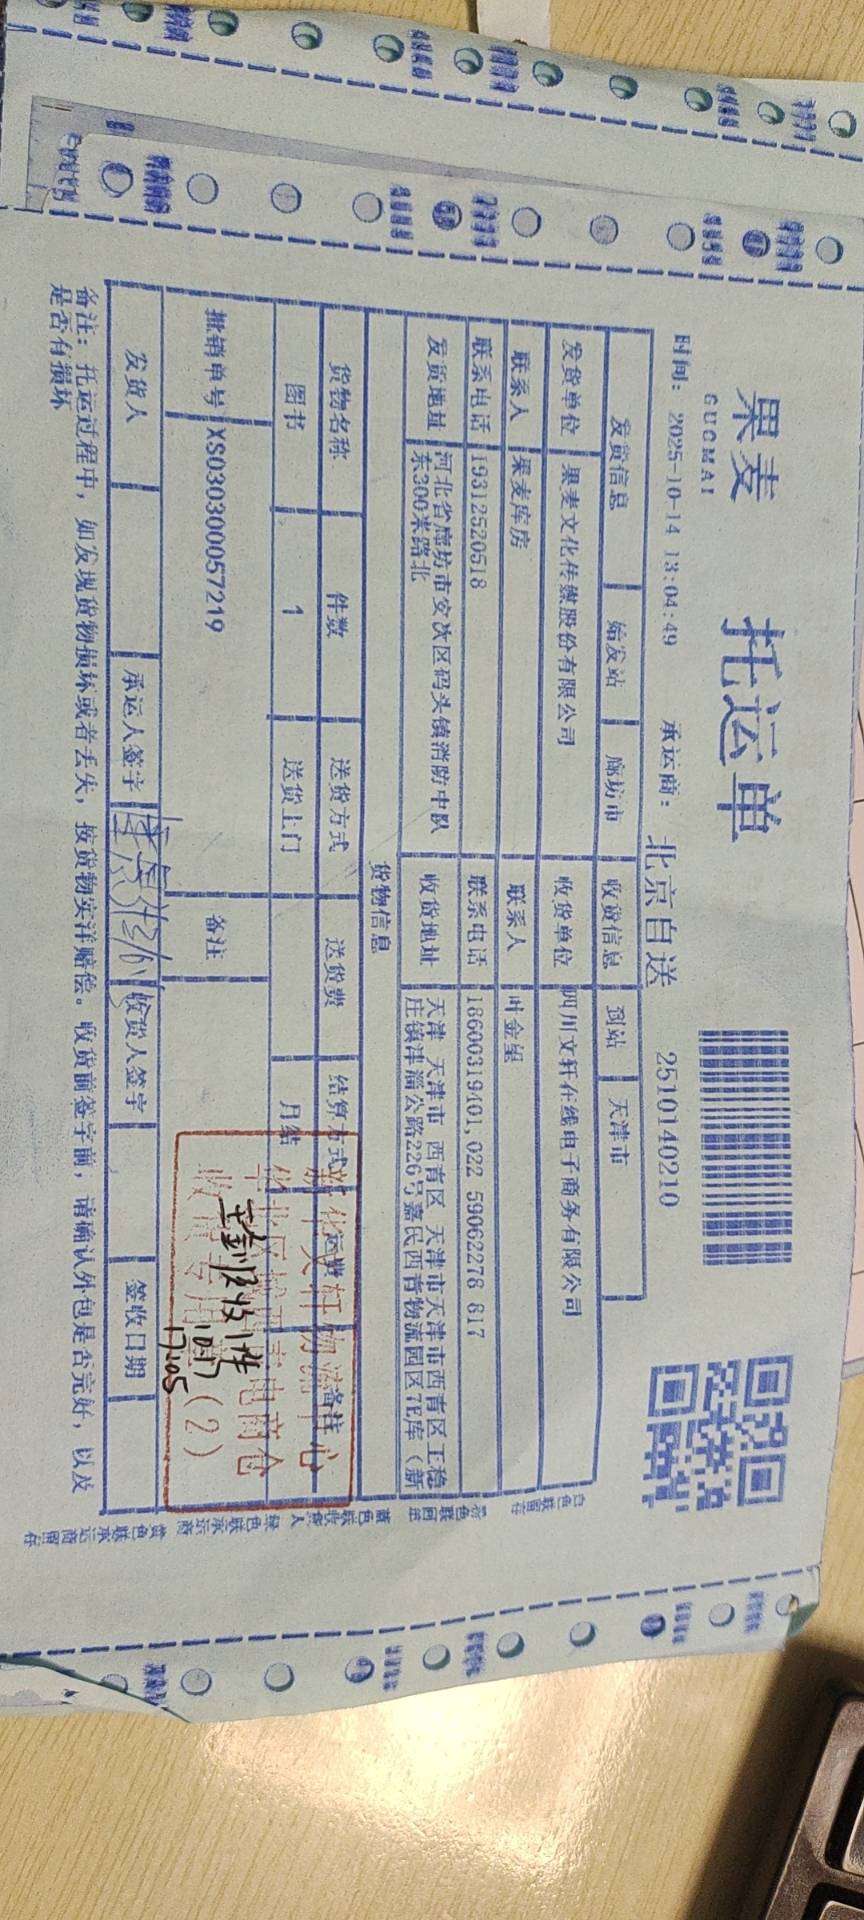 果麦 托运单
GUOMAI
时间: 2025-10-14 13:04:49 承运商: 北京自送 2510140210
发货信息 始发站 廊坊市 收货信息 到站 天津市
发货单位 果麦文化传媒股份有限公司 收货单位 四川文轩在线电子商务有限公司
联系人 果麦库房 联系人 叶金星
联系电话 19312520518 联系电话 18600319401,022 59062278 817
发货地址 河北省廊坊市安次区码头镇消防中队东300米路北 收货地址 天津 天津市 西青区 天津市天津市西青区王稳庄镇津淄公路226号嘉民西青物流园区7E库（新
货物信息
货物名称 件数 送货方式 送货费 结算方式 运费 备注
图书 1 送货上门 月结
批销单号 XS030300057219 备注
新华文轩物流中心
华北区域天津电商仓
收货专用章(2)
实收1件
10.17
17:05
发货人 承运人签字 收货人签字 签收日期
备注: 托运过程中，如发现货物损坏或者丢失，按货物实洋赔偿。收货前签字前，请确认外包是否完好，以及是否有损坏
白色联留存
蓝色联收货人
绿色联承运商
黄色联承运商留存